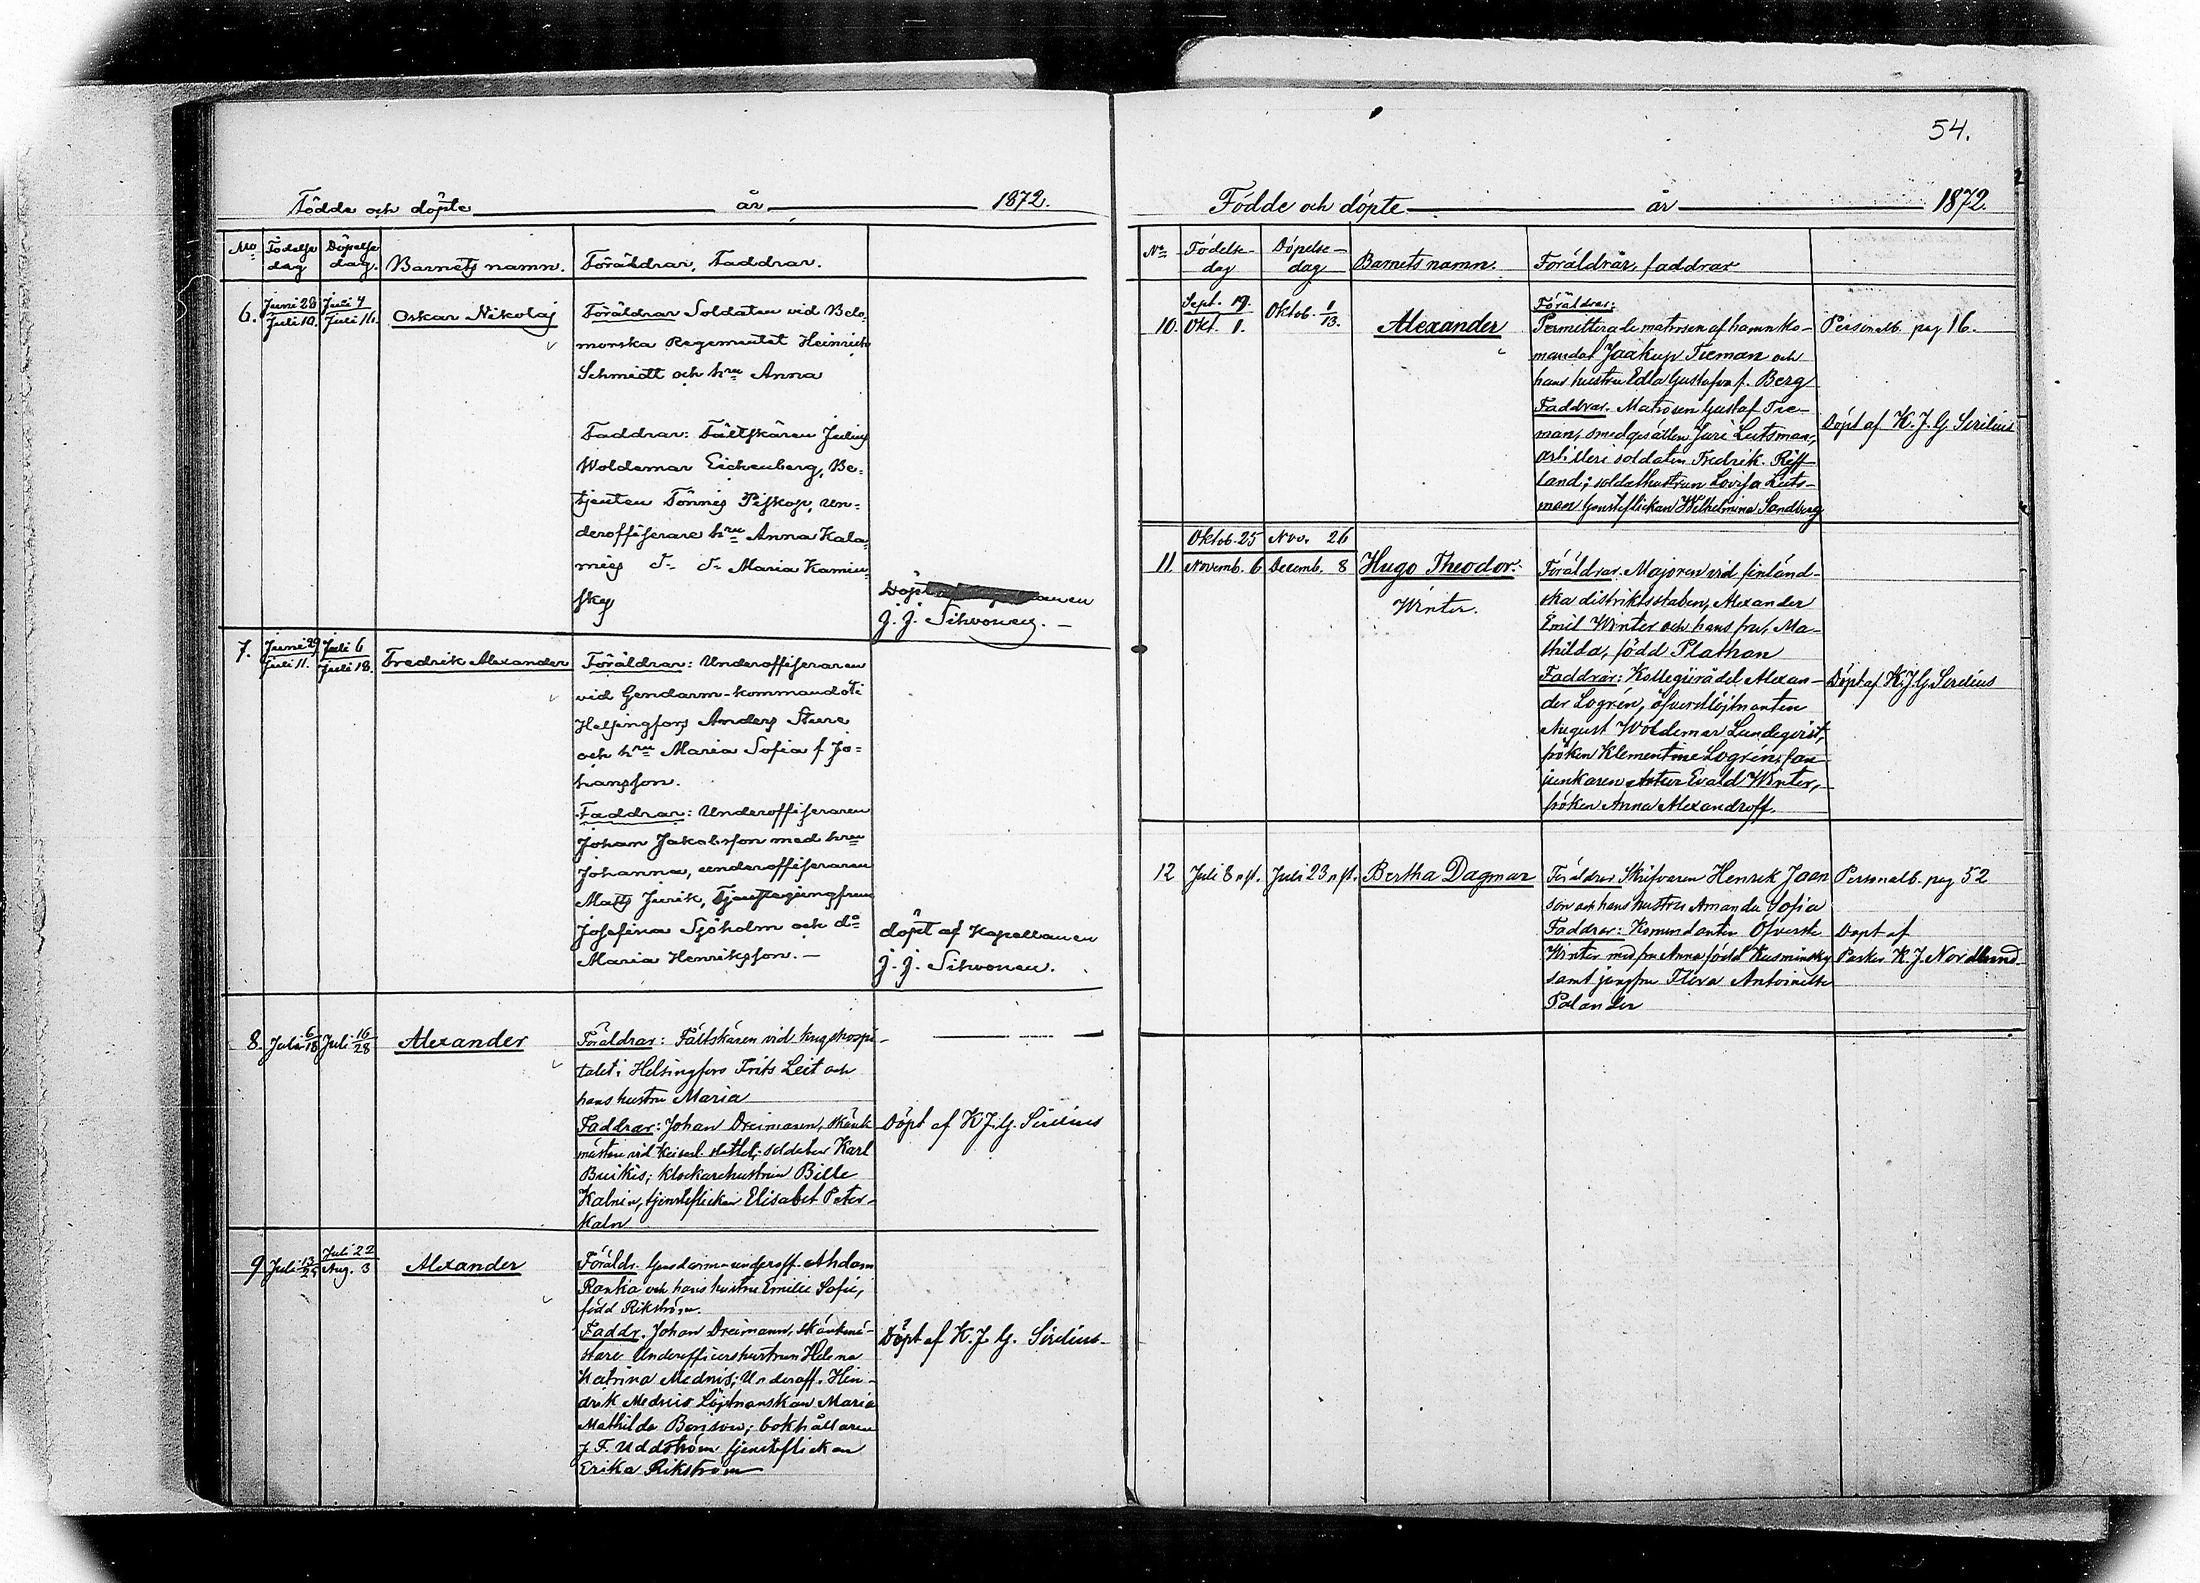 54.
Födde och döpte år 1872.
No Födelse dag Döpelse dag. Barnets namn. Föräldrar, Faddrar.
6. Juni 28 Juli 4 Oskar Nikolaj Föräldrar Soldaten vid Belo-
Juli 10. Juli 16.
morska Regementet Heinrich
Schmidtt och hru Anna
Faddrar: Fältskären Julius
Woldemar Eichenberg, Be-
tjenten Tönnis Piskop, un-
derofficerare hru Anna Kala-
nies d:o d:o Maria Kamin-
sky
Döpt
J. J. Sihvonen.
7. Juni 29 Juli 6 Fredrik Alexander Föräldrar: Underofficeraren
Juli 11. Juli 18.
vid Gendarm-kommandot i
Helsingfors Anders Sture
och hru Maria Sofia f Jo-
hansson.
Faddrar: Underofficeraren
Johan Jakobsson med hru
Johanna, underofficeraren
Matts Jurik, Tjenstejungfrun
Josefina Sjöholm och do
Maria Henriksson.
döpt af Kapellanen
J. J. Sihvonen.
8. Juli 6/18 Juli 16/28 Alexander Föräldrar: Fältskären vid krigshospi-
talet i Helsingfors Frits Leit och
hans hustru Maria
Faddrar: Johan Dreimann, skänk-
mästare vid Keiserl. slottet; soldaten Karl
Buikis; klockarehustrun Bille
Kalnin, tjensteflickan Elisabet Peter-
kaln
Döpt af K J. G. Sirelius
9 Juli 13/25 Juli 22 Alexander Föräldr. Gensdarm-underoff. Ahdam
Aug. 3
Ranka och hans hustru Emilie Sofie,
född Rikström.
Faddr. Johan Dreimann, skänkmä-
stare Underofficershustrun Helena
Katrina Mednis; Underoff. Hin-
drik Mednis Löjtnanskan Maria
Mathilda Borisow; bokhållaren
J F. Uddström tjensteflickan
Erika Rikström
Döpt af K. J. G. Sirelius
Födde och döpte år 1872.
No Födelse-dag Döpelse-dag Barnets namn. Föräldrar, faddrar
10. Sept. 19. Oktob. 1/13. Alexander Föräldrar:
Okt. 1.
Permitterade matrosen af hamnko-
mandot Jaakup Treman och
hans hustru Edla Gustafva f. Berg
Faddrar. Matrosen Gustaf Tre-
man, smedgesällen Juri Leetsman,
artilleri soldaten Fredrik Reff-
land; soldathustrun Lovisa Leets-
man tjensteflickan Wilhelmina Sandberg
Personalb. pag 16.
Döpt af K. J. G. Sirelius
11. Oktob. 25 Nov. 26 Hugo Theodor.
Novemb. 6 Decemb. 8 Winter.
Föräldrar. Majoren vid finländ-
ska distriktsstaben, Alexander
Emil Winter och hans fru, Ma-
thilda, född Plathan
Faddrar: Kollegiirådet Alexan-
der Logrén, öfverstlöjtnanten
August Woldemar Lundeqvist,
fröken Klementine Logrén; fan-
junkaren Artur Evald Winter,
fröken Anna Alexandroff.
Döpt af K. J. G. Sirelius
12 Juli 8 n st. Juli 23 n st. Bertha Dagmar Föräldrar Skrifvaren Henrik Joon
son och hans hustru Amanda Sofia
Faddrar: Komendanten Öfverste
Winter med fru Anna född Kusminsky
samt jungfru Flora Antoinette
Palander
Personalb. pag 52
Döpt af
Pastor K. J. Nordlund